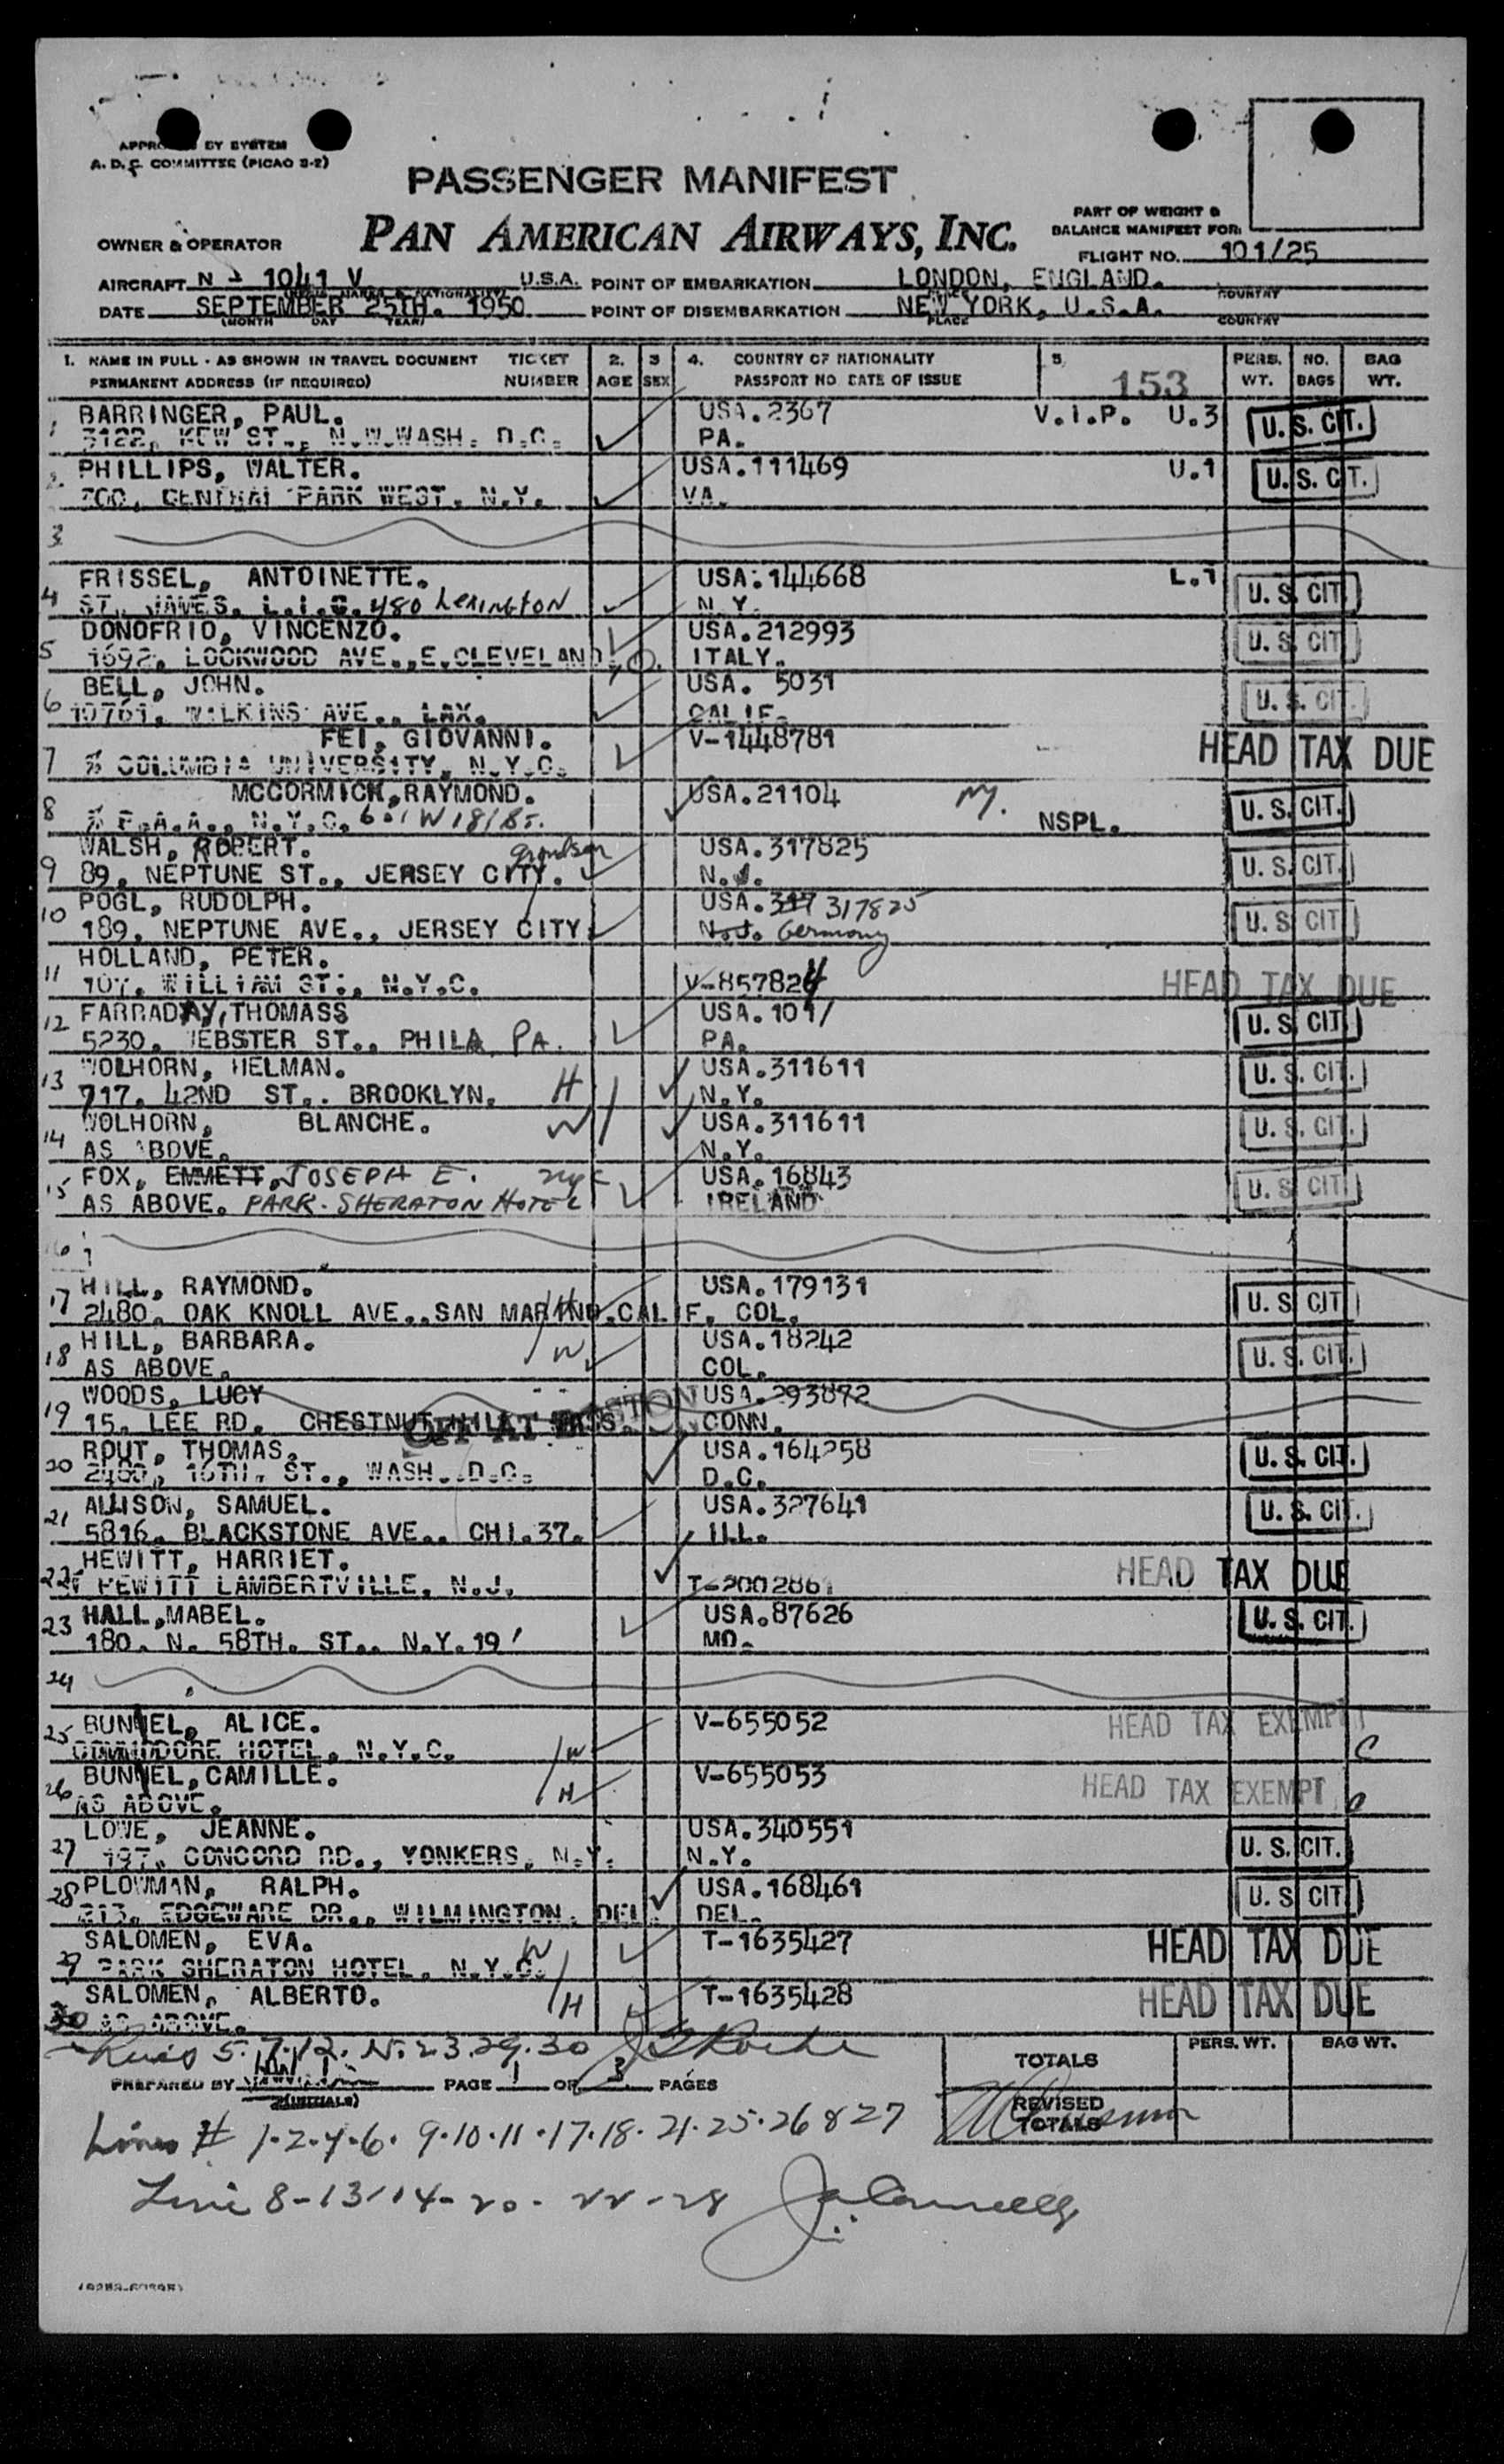 APPROVED BY SYSTEM
A. D. F. COMMITTEE (PICAO 3-2)
PASSENGER MANIFEST
PAN AMERICAN AIRWAYS, INC.
PART OF WEIGHT &
BALANCE MANIFEST FOR:
OWNER & OPERATOR
FLIGHT NO. 101/25
AIRCRAFT N - 1041 V U.S.A. POINT OF EMBARKATION LONDON, ENGLAND.
PLACE COUNTRY
DATE SEPTEMBER 25TH. 1950 POINT OF DISEMBARKATION NEW YORK, U.S.A.
(MONTH DAY YEAR) PLACE COUNTRY
1. NAME IN FULL - AS SHOWN IN TRAVEL DOCUMENT TICKET 2. 3 4. COUNTRY OF NATIONALITY 5. PERS. NO. BAG
PERMANENT ADDRESS (IF REQUIRED) NUMBER AGE SEX PASSPORT NO. DATE OF ISSUE 153 WT. BAGS WT.
1 BARRINGER, PAUL. USA.2367 V.I.P. U.3 U.S. CIT.
3122, KEW ST., N.W.WASH. D.C. PA.
2 PHILLIPS, WALTER. USA.111469 U.1 U.S. CIT.
300, CENTRAL PARK WEST. N.Y. VA.
3
4 FRISSEL, ANTOINETTE. USA.144668 L.1 U.S. CIT.
ST. JAMES. L.I.C. 480 Lexington N.Y.
5 DONOFRIO, VINCENZO. USA.212993 U.S. CIT.
1692, LOCKWOOD AVE.,E.CLEVELAND, O. ITALY.
6 BELL, JOHN. USA. 5031 U.S. CIT.
10761, WALKINS AVE., LAX. CALIF.
7 FEI, GIOVANNI. V-1448781 HEAD TAX DUE
% COLUMBIA UNIVERSITY, N.Y.C.
8 MCCORMICK,RAYMOND. USA.21104 NY. NSPL. U.S. CIT.
% P.A.A., N.Y.C. 601 W 181 St.
9 WALSH, ROBERT. grandson USA.317825 U.S. CIT.
89, NEPTUNE ST., JERSEY CITY. N.J.
10 POGL, RUDOLPH. USA.317 317825 U.S. CIT.
189, NEPTUNE AVE., JERSEY CITY. N.J. Germany
11 HOLLAND, PETER.
107, WILLIAM ST., N.Y.C. V-857824 HEAD TAX DUE
12 FARRADAY,THOMASS USA.101/ U.S. CIT.
5230, WEBSTER ST., PHILA PA. PA.
13 WOLHORN, HELMAN. USA.311611 U.S. CIT.
717, 42ND ST., BROOKLYN. H N.Y.
14 WOLHORN, BLANCHE. W USA.311611 U.S. CIT.
AS ABOVE. N.Y.
15 FOX, EMMETT, JOSEPH E. NYC USA.16843 U.S. CIT.
AS ABOVE. PARK-SHERATON HOTEL IRELAND.
16
17 HILL, RAYMOND. H USA.179131 U.S. CIT.
2480, OAK KNOLL AVE.,SAN MARINO.CALIF. COL.
18 HILL, BARBARA. W USA.18242 U.S. CIT.
AS ABOVE. COL.
19 WOODS, LUCY USA.293872
15, LEE RD. CHESTNUT HILL MASS. OFF AT BOSTON CONN.
20 ROUT, THOMAS. USA.164258 U.S. CIT.
2480, 16TH. ST., WASH. D.C. D.C.
21 ALLISON, SAMUEL. USA.327641 U.S. CIT.
5816, BLACKSTONE AVE., CHI.37. ILL.
22 HEWITT, HARRIET. HEAD TAX DUE
HEWITT LAMBERTVILLE, N.J. T-2002861
23 HALL,MABEL. USA.87626 U.S. CIT.
180, N. 58TH. ST., N.Y.19 MO.
24
25 BUNNEL, ALICE. V-655052 HEAD TAX EXEMPT
COMMODORE HOTEL, N.Y.C. W C
26 BUNNEL,CAMILLE. V-655053 HEAD TAX EXEMPT
AS ABOVE. H
27 LOWE, JEANNE. USA.340551 U.S. CIT.
197, CONCORD RD., YONKERS, N.Y. N.Y.
28 PLOWMAN, RALPH. USA.168461 U.S. CIT.
213, EDGEWARE DR., WILMINGTON. DEL. DEL.
29 SALOMEN, EVA. W T-1635427 HEAD TAX DUE
PARK SHERATON HOTEL, N.Y.C.
30 SALOMEN, ALBERTO. H T-1635428 HEAD TAX DUE
AS ABOVE.
5. 7. 12. 15. 23. 29. 30
TOTALS PERS. WT. BAG WT.
PREPARED BY PAGE 1 OF 3 PAGES
(INITIALS)
REVISED TOTALS
Lines # 1-2-4-6. 9-10-11-17-18-21-25-26 & 27
Line 8-13-14-20-22-28